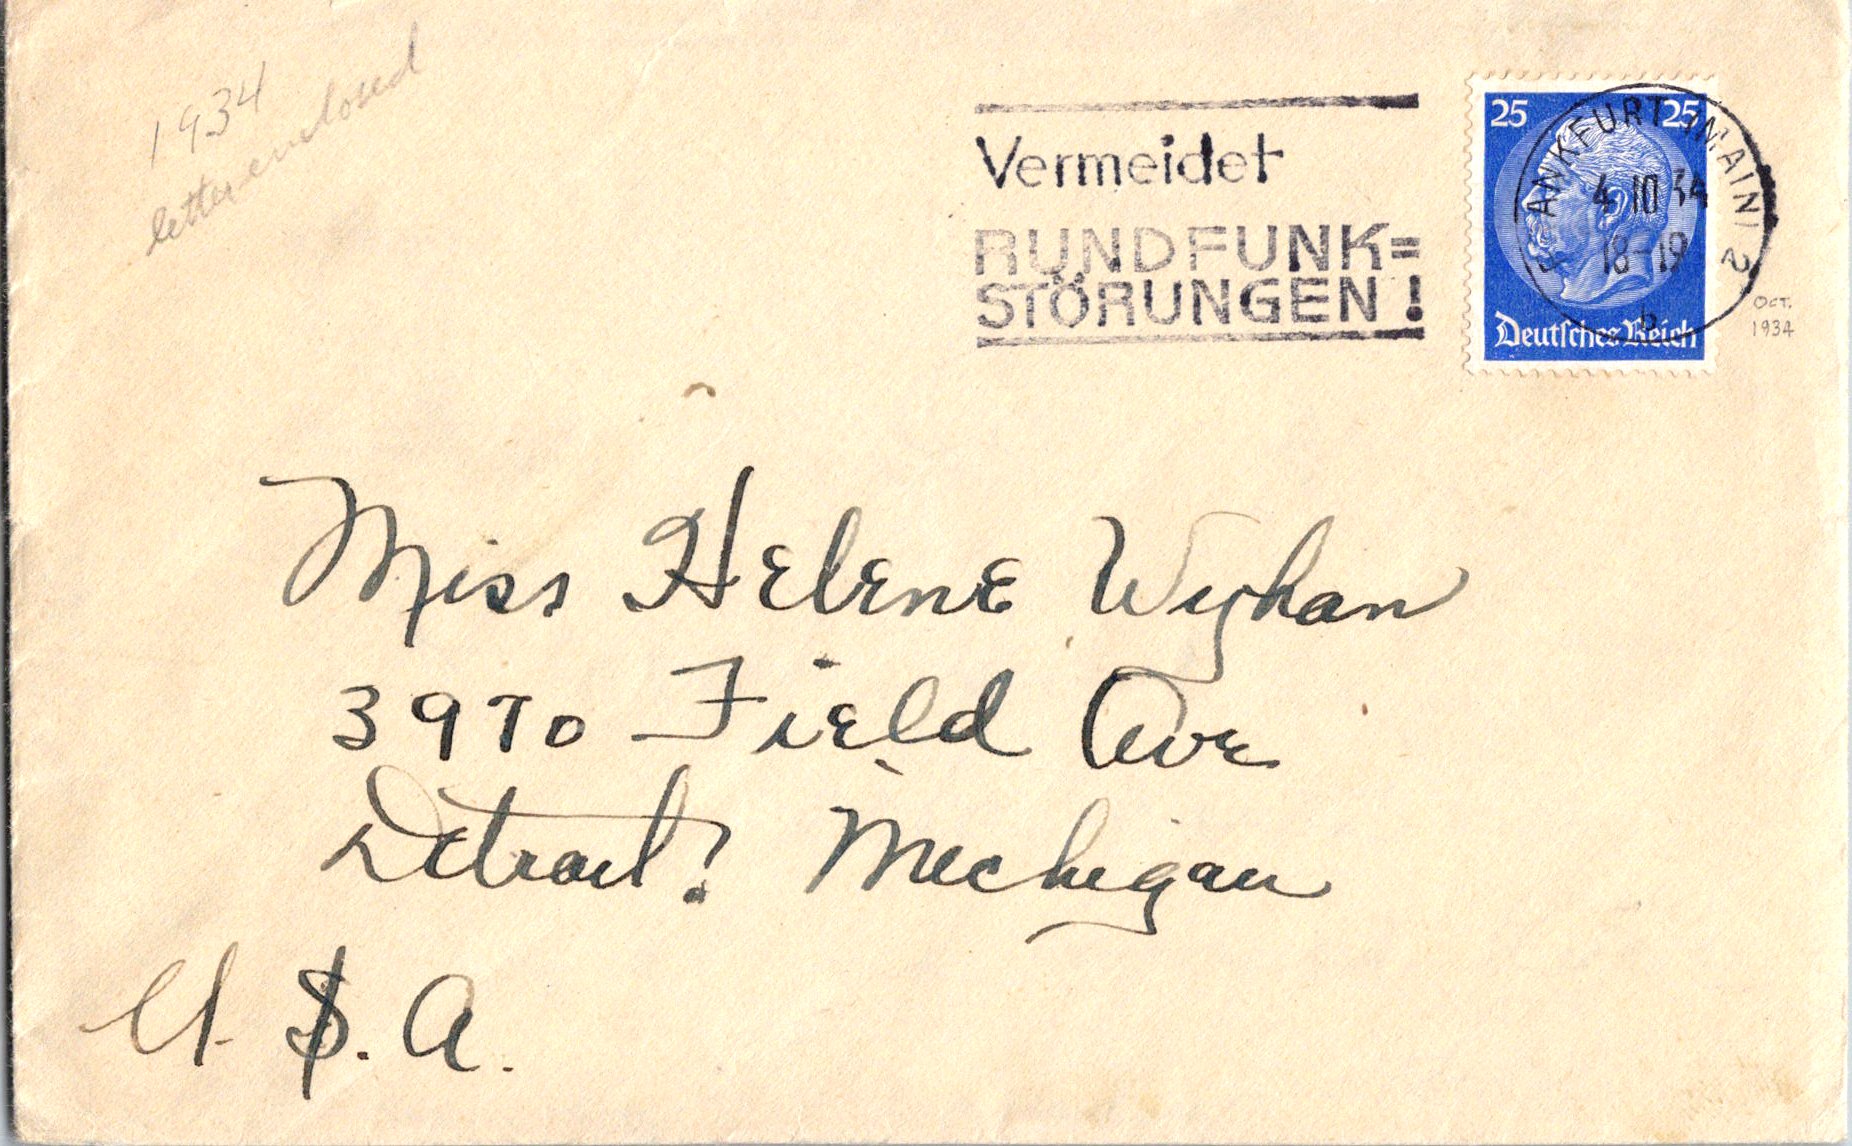 1934
letter enclosed
Vermeidet
RUNDFUNK=
STÖRUNGEN!
25 25
Deutsches Reich
FRANKFURT (MAIN) 2
4 10 34
18-19
b
OCT.
1934
Miss Helene Wyhan
3970 Field Ave
Detroit! Michigan
U.S.A.